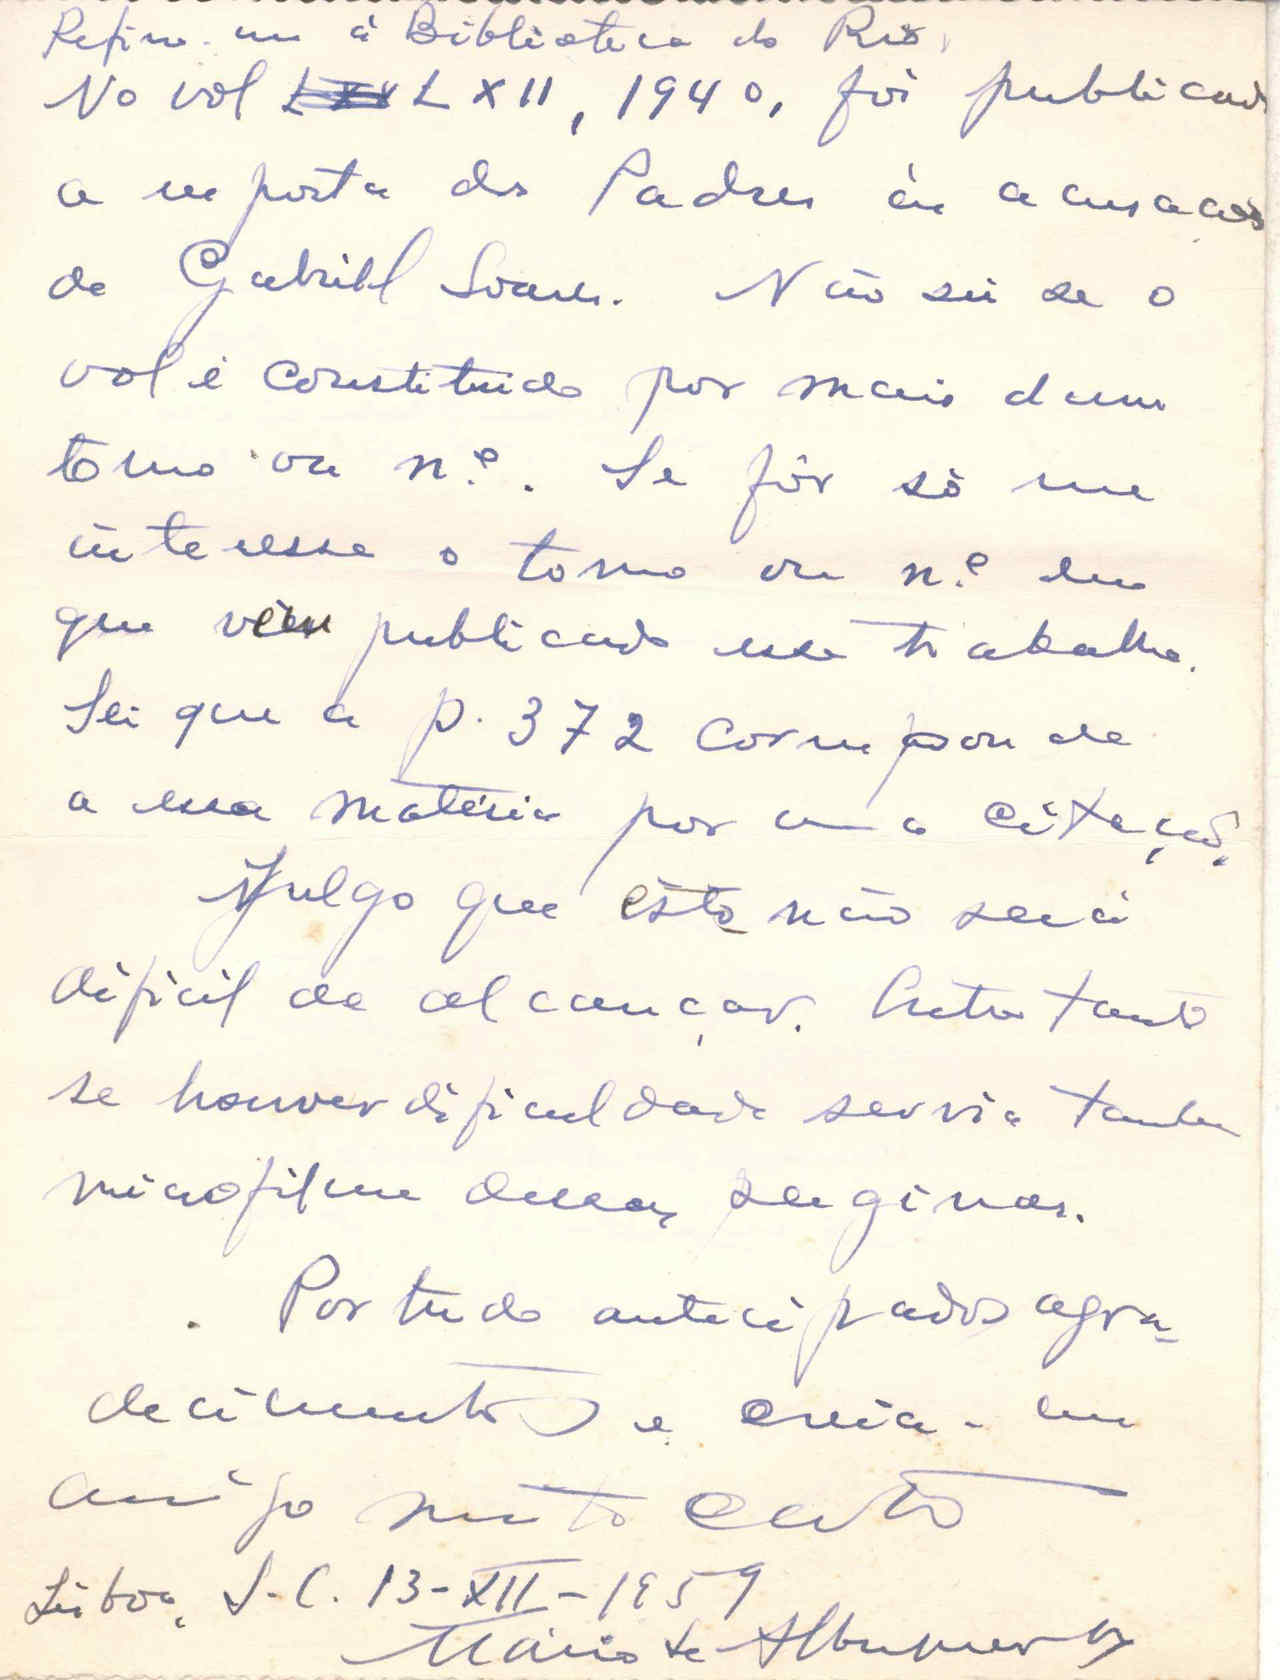 Refiro-me à Biblioteca do Rio.
No vol LXII, 1940, foi publicada
a resposta dos Padres às acusações
de Gabriel Soares. Não sei se o
vol é constituido por mais dum
tomo ou n.º. Se fôr só me
interessa o tomo ou n.º em
que vem publicado esse trabalho.
Sei que a p. 372 corresponde
a essa matéria por uma citação.
Julgo que isto não será
dificil de alcançar. Entretanto
se houver dificuldade servia tambem
microfilme dessas paginas.
Por tudo antecipados agra-
decimentos e creia-me
amigo muito certo
Lisboa, S.C. 13-XII-1959
Mário de Albuquerque